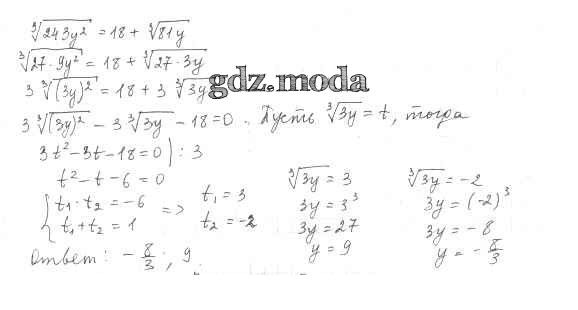 ∛243y² = 18 + ∛81y
∛27·9y² = 18 + ∛27·3y
3∛(3y)² = 18 + 3∛3y
gdz.moda
3∛(3y)² - 3∛3y - 18 = 0. Пусть ∛3y = t, тогда
3t² - 3t - 18 = 0 | : 3
t² - t - 6 = 0
{ t₁ · t₂ = -6
t₁ + t₂ = 1
=> t₁ = 3
t₂ = -2
∛3y = 3
3y = 3³
3y = 27
y = 9
∛3y = -2
3y = (-2)³
3y = -8
y = -8/3
Ответ: -8/3; 9.